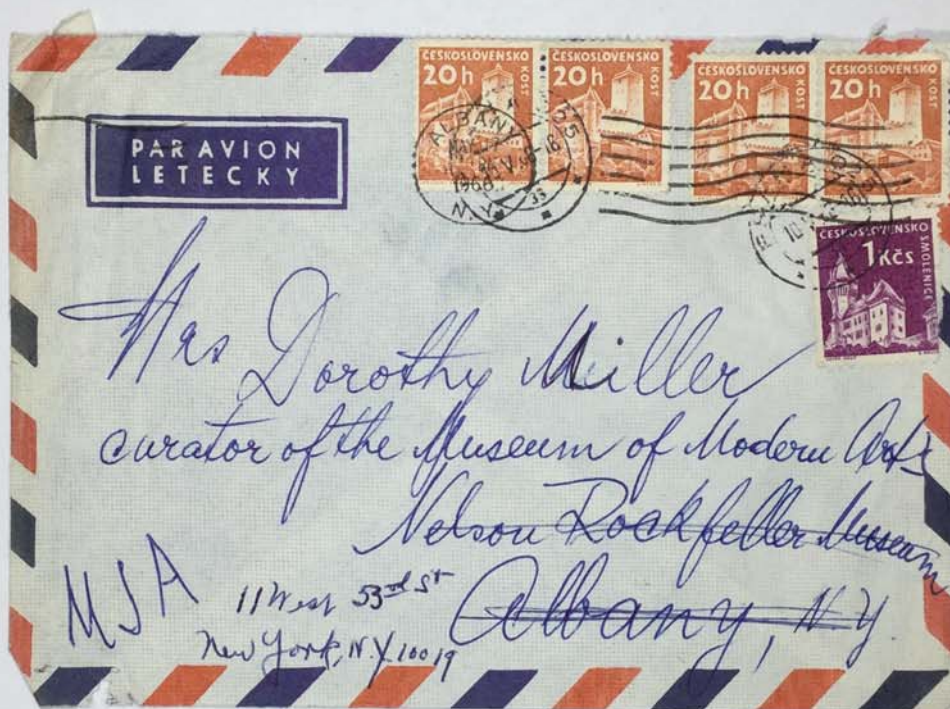 ČESKOSLOVENSKO
20h
KOST
ČESKOSLOVENSKO
20h
KOST
ČESKOSLOVENSKO
20h
KOST
ČESKOSLOVENSKO
20h
KOST
PAR AVION
LETECKY
ALBANY
1968
N.Y.
33
ČESKOSLOVENSKO
1 Kčs
SMOLENICE
Mrs Dorothy Miller
curator of the Museum of Modern Arts
Nelson Rockfeller Museum
Albany, N.Y
USA
11 West 53rd St
New York, N.Y. 10019